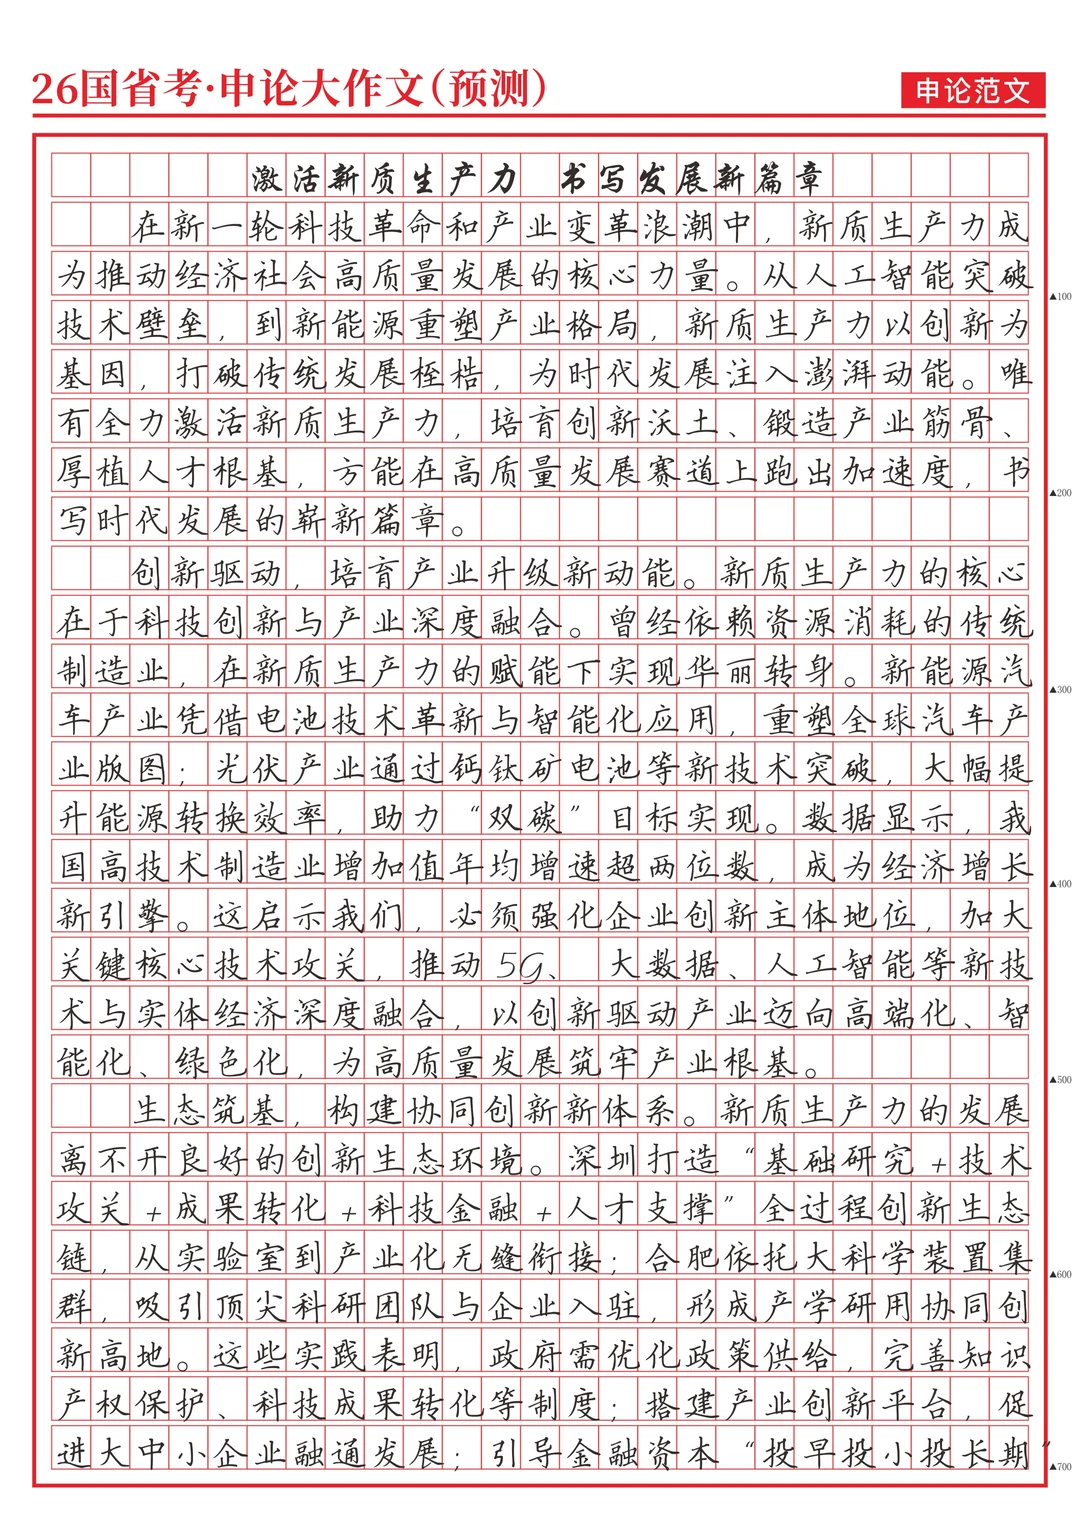 26国省考·申论大作文(预测)
申论范文
激活新质生产力 书写发展新篇章
在新一轮科技革命和产业变革浪潮中,新质生产力成
为推动经济社会高质量发展的核心力量。从人工智能突破
▲100
技术壁垒,到新能源重塑产业格局,新质生产力以创新为
基因,打破传统发展桎梏,为时代发展注入澎湃动能。唯
有全力激活新质生产力,培育创新沃土、锻造产业筋骨、
厚植人才根基,方能在高质量发展赛道上跑出加速度,书
▲200
写时代发展的崭新篇章。
创新驱动,培育产业升级新动能。新质生产力的核心
在于科技创新与产业深度融合。曾经依赖资源消耗的传统
制造业,在新质生产力的赋能下实现华丽转身。新能源汽
▲300
车产业凭借电池技术革新与智能化应用,重塑全球汽车产
业版图;光伏产业通过钙钛矿电池等新技术突破,大幅提
升能源转换效率,助力“双碳”目标实现。数据显示,我
国高技术制造业增加值年均增速超两位数,成为经济增长
▲400
新引擎。这启示我们,必须强化企业创新主体地位,加大
关键核心技术攻关,推动5G、大数据、人工智能等新技
术与实体经济深度融合,以创新驱动产业迈向高端化、智
能化、绿色化,为高质量发展筑牢产业根基。
▲500
生态筑基,构建协同创新新体系。新质生产力的发展
离不开良好的创新生态环境。深圳打造“基础研究+技术
攻关+成果转化+科技金融+人才支撑”全过程创新生态
链,从实验室到产业化无缝衔接;合肥依托大科学装置集
▲600
群,吸引顶尖科研团队与企业入驻,形成产学研用协同创
新高地。这些实践表明,政府需优化政策供给,完善知识
产权保护、科技成果转化等制度;搭建产业创新平台,促
进大中小企业融通发展;引导金融资本“投早投小投长期”
▲700